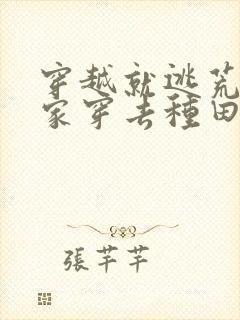 穿越就逃荒
家穿去種田
張芊芊